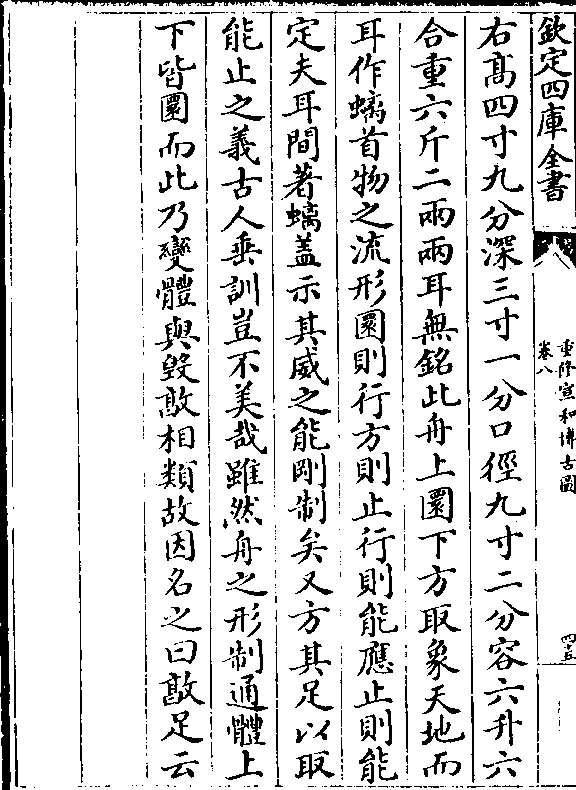 欽定四庫全書
重修宣和博古圖
卷八
四十五
右髙四寸九分深三寸一分口徑九寸二分容六升六
合重六斤二兩兩耳無銘此舟上圜下方取象天地而
耳作螭首物之流形圜則行方則止行則能應止則能
定夫耳間著螭盖示其威之能剛制矣又方其足以取
能止之義古人垂訓豈不美哉雖然舟之形制通體上
下皆圜而此乃變體與毀敦相類故因名之曰敦足云